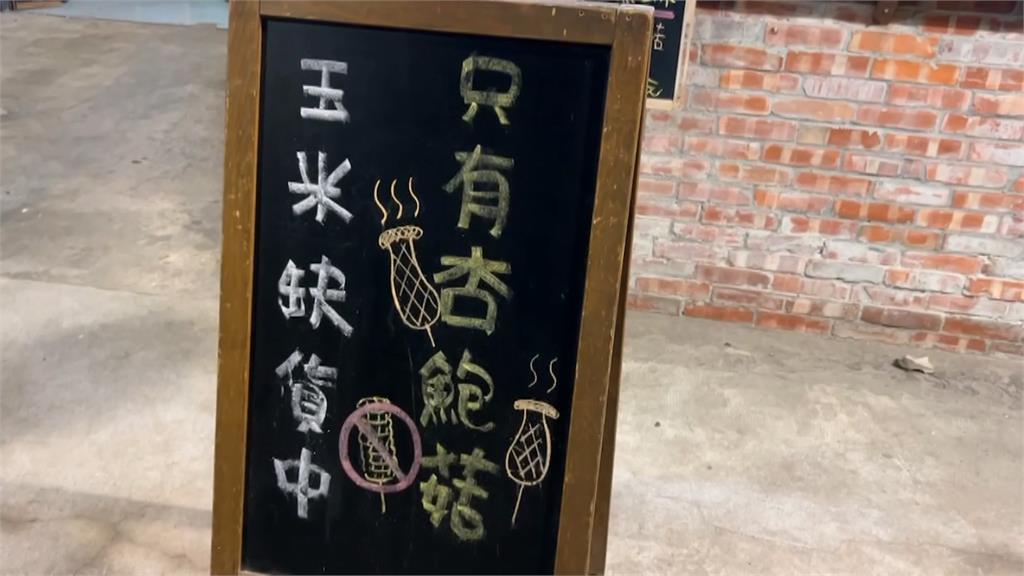 只有杏鮑菇
玉米缺貨中